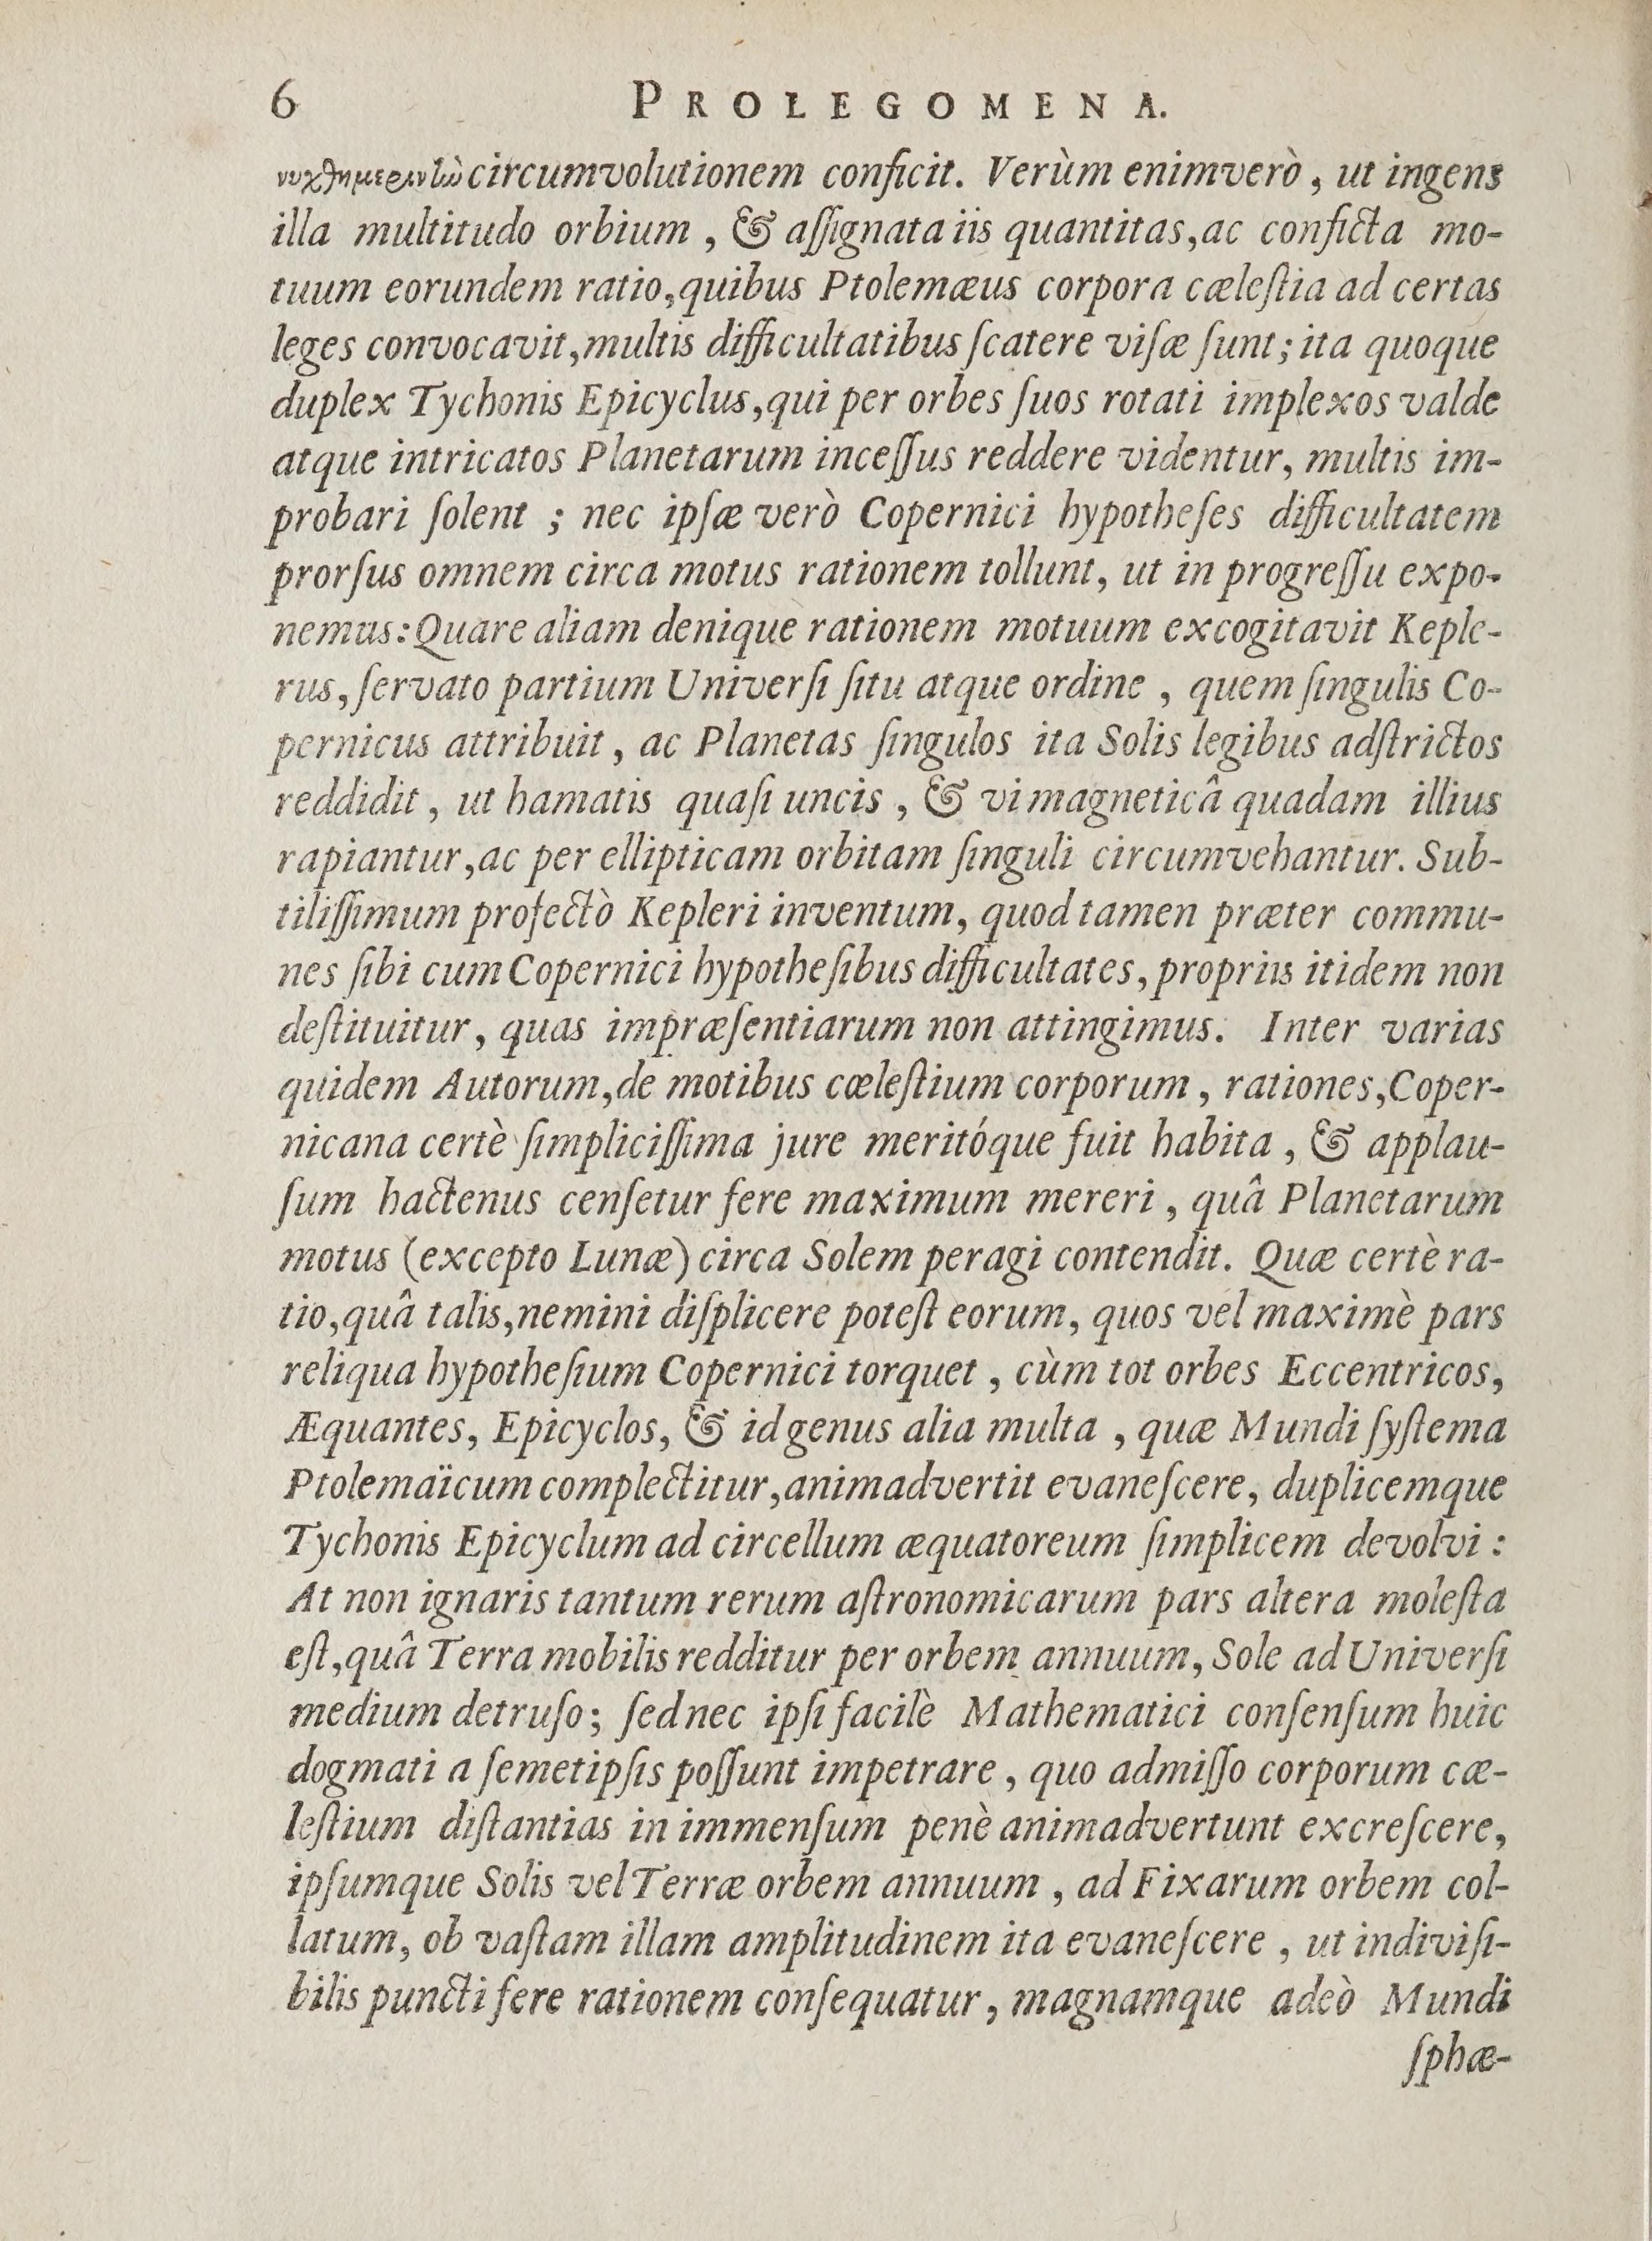 6 PROLEGOMENA.
νυχθημερινὴν circumvolutionem conficit. Verùm enimverò, ut ingens
illa multitudo orbium, & aſſignata iis quantitas, ac conficta mo-
tuum eorundem ratio, quibus Ptolemæus corpora cæleſtia ad certas
leges convocavit, multis difficultatibus ſcatere viſæ ſunt; ita quoque
duplex Tychonis Epicyclus, qui per orbes ſuos rotati implexos valde
atque intricatos Planetarum inceſſus reddere videntur, multis im-
probari ſolent; nec ipſæ verò Copernici hypotheſes difficultatem
prorſus omnem circa motus rationem tollunt, ut in progreſſu expo-
nemus: Quare aliam denique rationem motuum excogitavit Keple-
rus, ſervato partium Univerſi ſitu atque ordine, quem ſingulis Co-
pernicus attribuit, ac Planetas ſingulos ita Solis legibus adſtrictos
reddidit, ut hamatis quaſi uncis, & vi magneticâ quadam illius
rapiantur, ac per ellipticam orbitam ſinguli circumvehantur. Sub-
tiliſſimum profectò Kepleri inventum, quod tamen præter commu-
nes ſibi cum Copernici hypotheſibus difficultates, propriis itidem non
deſtituitur, quas impræſentiarum non attingimus. Inter varias
quidem Autorum, de motibus cœleſtium corporum, rationes, Coper-
nicana certè ſimpliciſſima jure meritóque fuit habita, & applau-
ſum hactenus cenſetur fere maximum mereri, quâ Planetarum
motus (excepto Lunæ) circa Solem peragi contendit. Quæ certè ra-
tio, quâ talis, nemini diſplicere poteſt eorum, quos vel maximè pars
reliqua hypotheſium Copernici torquet, cùm tot orbes Eccentricos,
Æquantes, Epicyclos, & id genus alia multa, quæ Mundi ſyſtema
Ptolemaïcum complectitur, animadvertit evaneſcere, duplicemque
Tychonis Epicyclum ad circellum æquatoreum ſimplicem devolvi:
At non ignaris tantum rerum aſtronomicarum pars altera moleſta
eſt, quâ Terra mobilis redditur per orbem annuum, Sole ad Univerſi
medium detruſo; ſed nec ipſi facilè Mathematici conſenſum huic
dogmati a ſemetipſis poſſunt impetrare, quo admiſſo corporum cæ-
leſtium diſtantias in immenſum penè animadvertunt excreſcere,
ipſumque Solis vel Terræ orbem annuum, ad Fixarum orbem col-
latum, ob vaſtam illam amplitudinem ita evaneſcere, ut indiviſi-
bilis puncti fere rationem conſequatur, magnamque adeò Mundi
ſphæ-